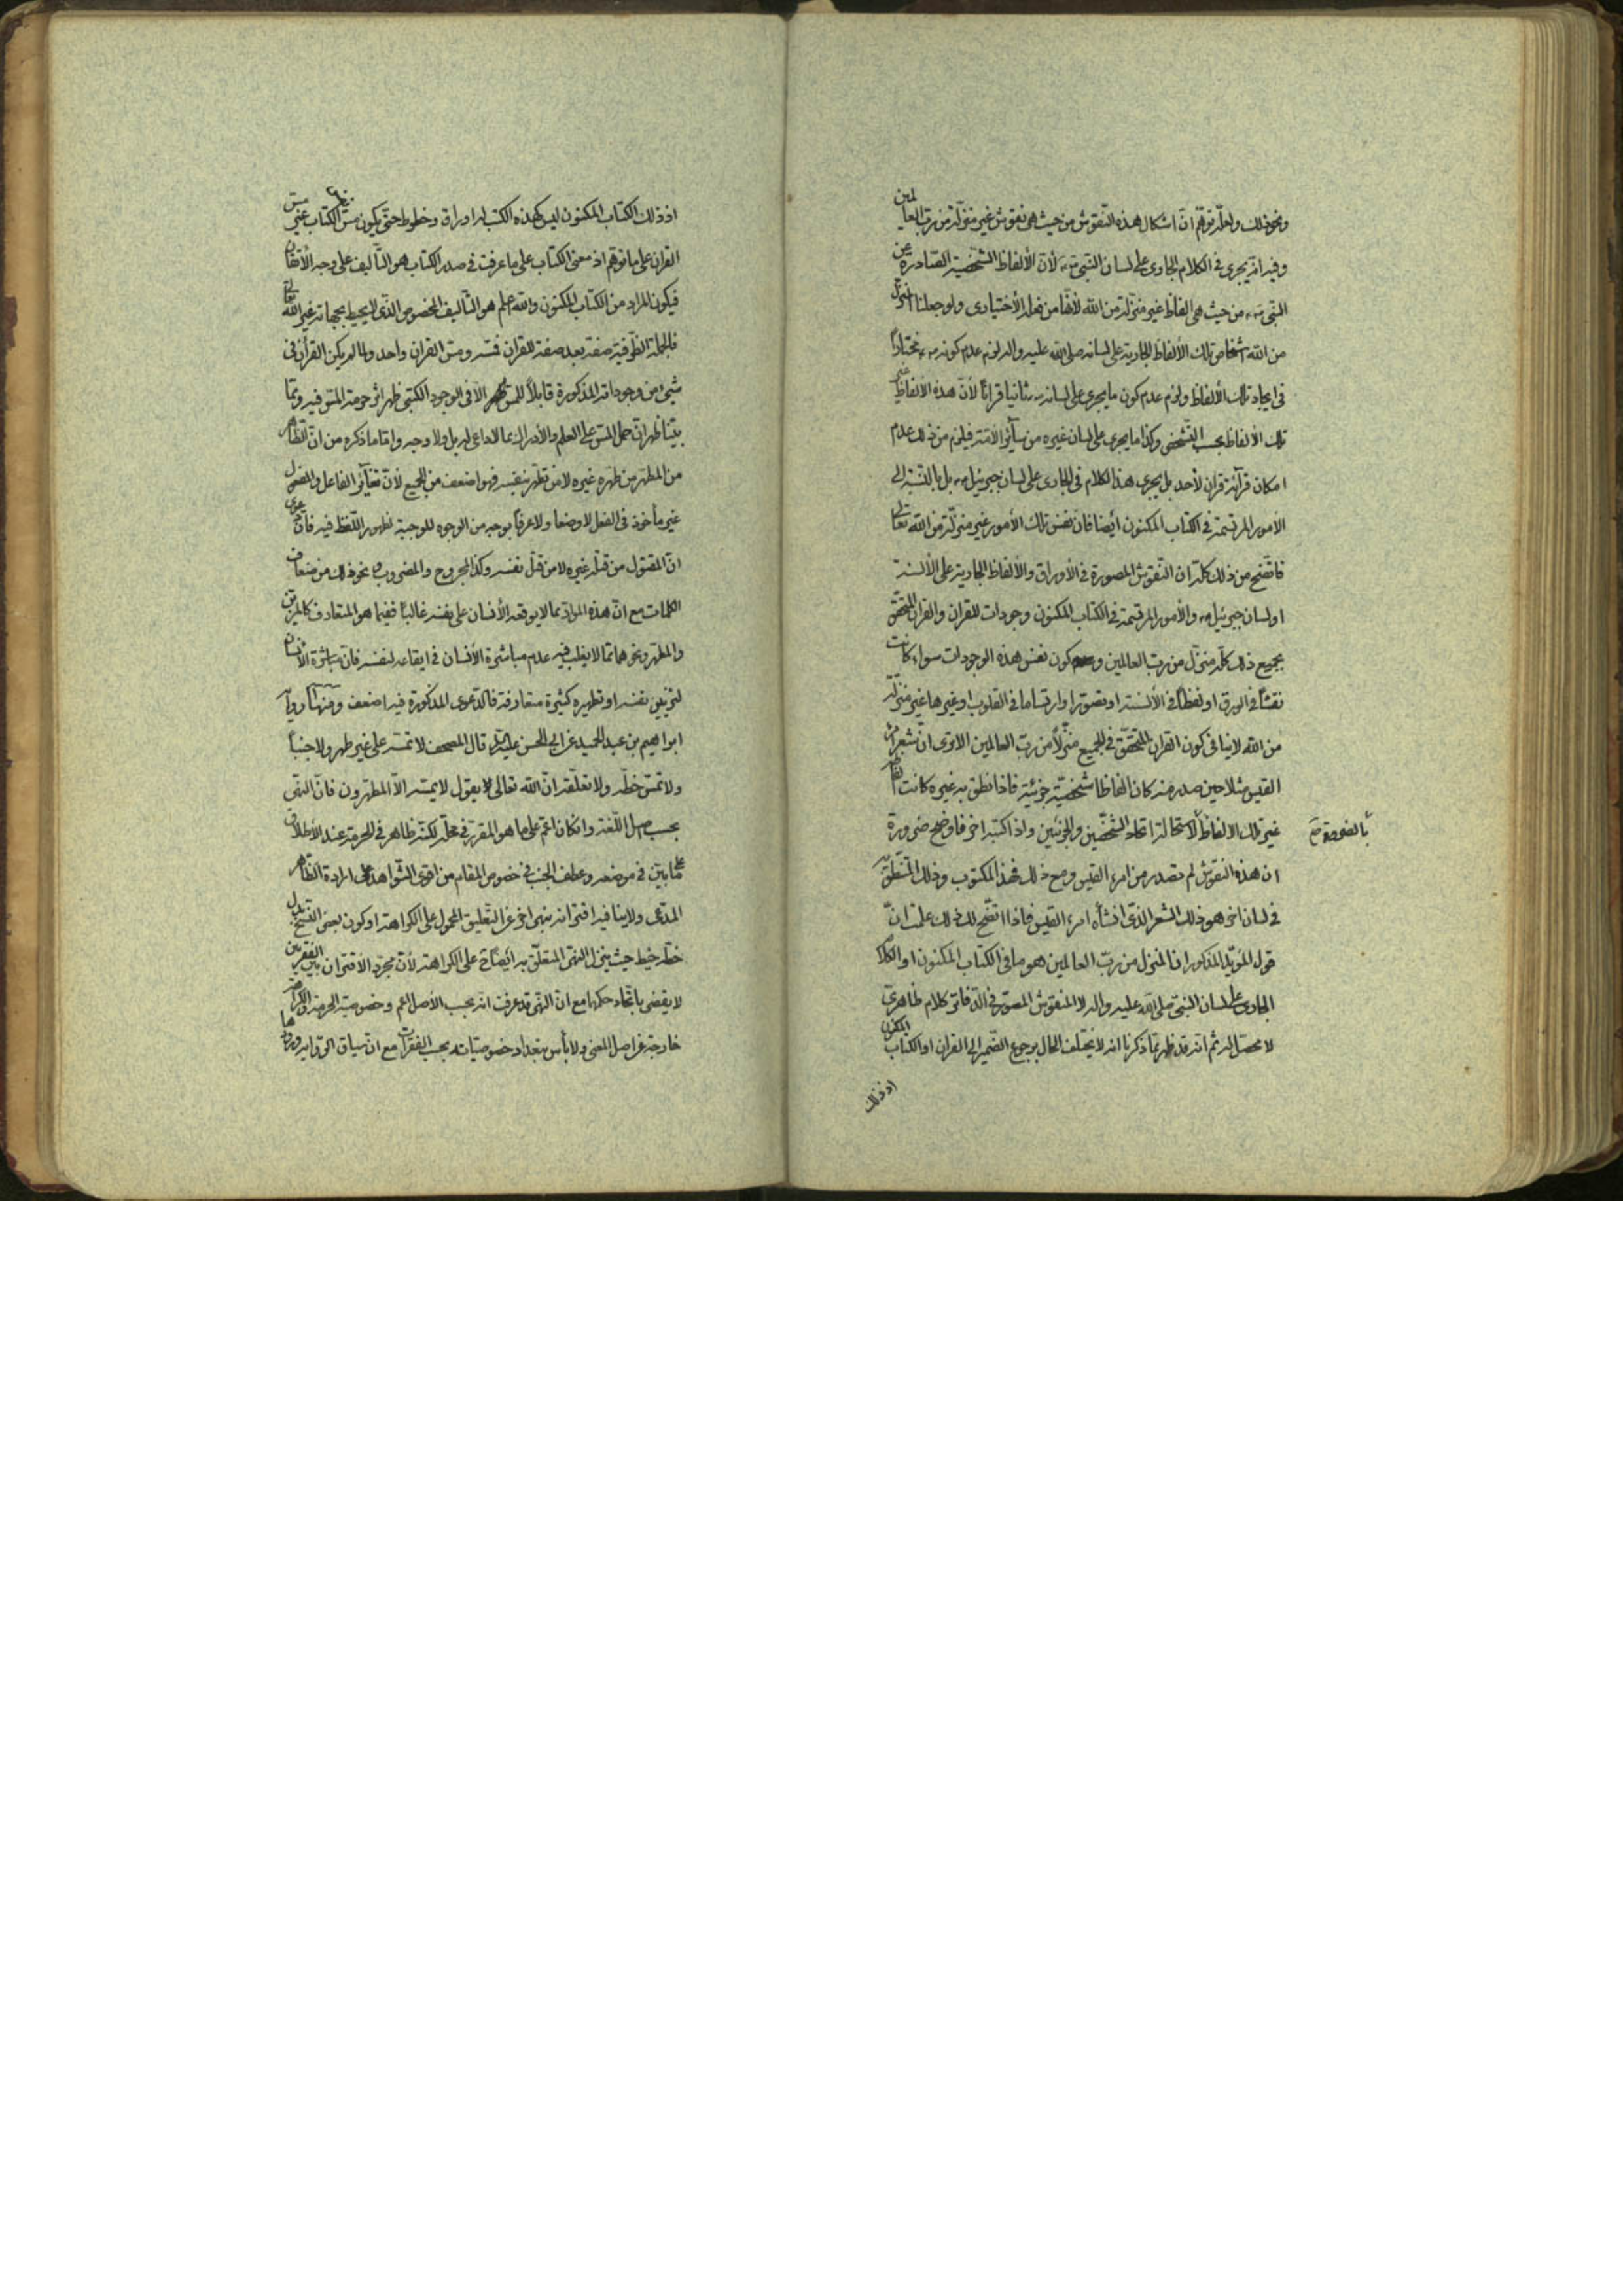 ونحو ذلك ولعلّه توهّم انّ اشكال هذه النّقوش من حيث هى نقوش غير منزّلة من ربّ العالمين
وفيه انّه يجرى فى الكلام الجارى على لسان النّبىّ ص لأنّ الألفاظ الشّخصيّة الصّادرة عن
النّبى ص من حيث هى الفاظ غير منزّلة من الله لأنّها من فعله الأختيارى ولو جعلنا المنزّل
من الله اشخاص تلك الألفاظ الجارية على لسانه صلى الله عليه واله لزم عدم كونه ص مختاراً
فى ايجاد تلك الألفاظ ولزم عدم كون ما يجرى على لسانه ص ثانيا قراناً لأنّ هذه الألفاظ غير
تلك الألفاظ بحسب التّشخّص وكذا ما يجرى على لسان غيره من سائر الأمّة فيلزم من ذلك عدم
امكان قرائة قران لأحد بل يجرى هذا الكلام فى الجارى على لسان جبرئيل ع بل بالنّسبة الى
الأمور المرتسمة فى الكتاب المكنون أيضا فانّ نفس تلك الأمور غير منزّلة من الله تعالى
فاتّضح من ذلك كلّه ان النّقوش المصورة فى الأوراق والألفاظ الجارية على الألسنة
او لسان جبرئيل ع والأمور المرتسمة فى الكتاب المكنون وجودات للقران والقران المتحقّق
بجميع ذلك كلّه منزّل من ربّ العالمين و كون نفس هذه الوجودات سواء كانت
نقشاً فى الورق او لفظاً فى الألسنة او تصورا وارتساما فى القلوب او غيرها غير منزّلة
من الله لا ينافى كون القران المتحقّق فى الجميع منزّلاً من ربّ العالمين الا ترى انّ شعر امرء
القيس مثلا حين صدر منه كان الفاظا شخصيّة جزئيّة فاذا نطق به غيره كانت الفاظه
غير تلك الالفاظ لأستحالة اتحاد الشّخصّين والجزئيّين واذا كتبه اخر فاوضح ضرورة
بالضرورة صح
ان هذه النّقوش لم تصدر من امرء القيس ومع ذلك فهذا المكتوب وذلك المنطّق به
فى لسان اخر هو ذلك الشعر الّذى انشأه امرء القيس فاذا اتّضح لك ذلك علمت انّ
قول المؤيّد المذكور انا المنزل من ربّ العالمين هو ما فى الكتاب المكنون او الكلام
الجارى على لسان النّبى صلى الله عليه واله لا المنقوش المصوّر فى الدّفاتر كلام ظاهرىّ
لا محصّل له ثم انّه قد ظهر ممّا ذكرنا انه لا يختلف الحال برجوع الضّمير الى القران او الكتاب المكنون
اذ ذلك
اذ ذلك الكتاب المكنون ليس كهذه الكتب له اوراق وخطوط حتّى يكون مسّ الكتاب غير مسّ
القران على ما توهّم اذ معنى الكتاب على ما عرفت فى صدر الكتاب هو التّأليف على وجه الأتقان
فيكون المراد من الكتاب المكنون والله اعلم هو التّأليف المخصوص الّذى لا يحيط بجهاته غير الله تعالى
فالجملة الظّرفية صفة بعد صفة للقران فمسّه ومسّ القران واحد ولما لم يكن القرأن فى
شىء من وجوداته المذكورة قابلاً للمسّ الّا فى الوجود الكتبى ظهر اثر حرمة المسّ فيه وممّا
بيّنا ظهر انّ حمل المسّ على العلم والأدراك مما لا داعى له بل ولا وجه وامّا ما ذكره من انّ الظّاهر
من المطهّر من طهّره غيره لا من تطهّر بنفسه فهو اضعف من الجميع لأنّ تغاير الفاعل والمفعول
غير مأخوذ فى الفعل لا وضعا ولا عرفاً بوجه من الوجوه الموجبة لظهور اللّفظ فيه فانّ دعوى
انّ المقتول من قتله غيره لا من قتل نفسه وكذا المجروح والمضروب ونحو ذلك من ضعاف
الكلمات مع انّ هذه الموادّ مما لا يوقعه الأنسان على نفسه غالباً ففيما هو المتعارف كالمزيّن
والمطهّر ونحوهما ممّا لا يغلب فيه عدم مباشرة الأنسان فى ايقاعه لنفسه فانّ مباشرة الأنسان
لتزيين نفسه او تطهيره كثيرة متعارفة فالدّعوى المذكورة فيه اضعف ومنها رواية
ابراهيم بن عبد الحميد عن ابى الحسن عليه السّلام قال المصحف لا تمسّه على غير طهر ولا جنباً
ولا تمسّ خطّه ولا تعلّقه انّ الله تعالى يقول لا يمسّه الّا المطهّرون فانّ النّهى
بحسب اصل اللّغة وان كان اعمّ على ما هو المقرر فى محلّه لكنّه ظاهر فى الحرمة عند الأطلاق
كما بيّن فى موضعه وعطف الجنب فى خصوص المقام من اقوى الشّواهد على ارادة الظّاهر
المدّعى ولا ينافيه اقترانه بنهى اخر عن التّعليق المحمول على الكراهة او كون بعض النّسخ بدل
خطّه خيطه حيث ينزل النّهى المتعلّق به أيضاً على الكراهة لأنّ مجرّد الأقتران بين الفقرتين
لا يقضى باتّحاد حكمها مع انّ النّهى قد عرفت انّه بحسب الأصل اعم وخصوصيّة الحرمة والكراهة
خارجة عن اصل المعنى ولا بأس بتعداد خصوصيّاته بحسب الفقرات مع ان سياق الرّواية وروودها